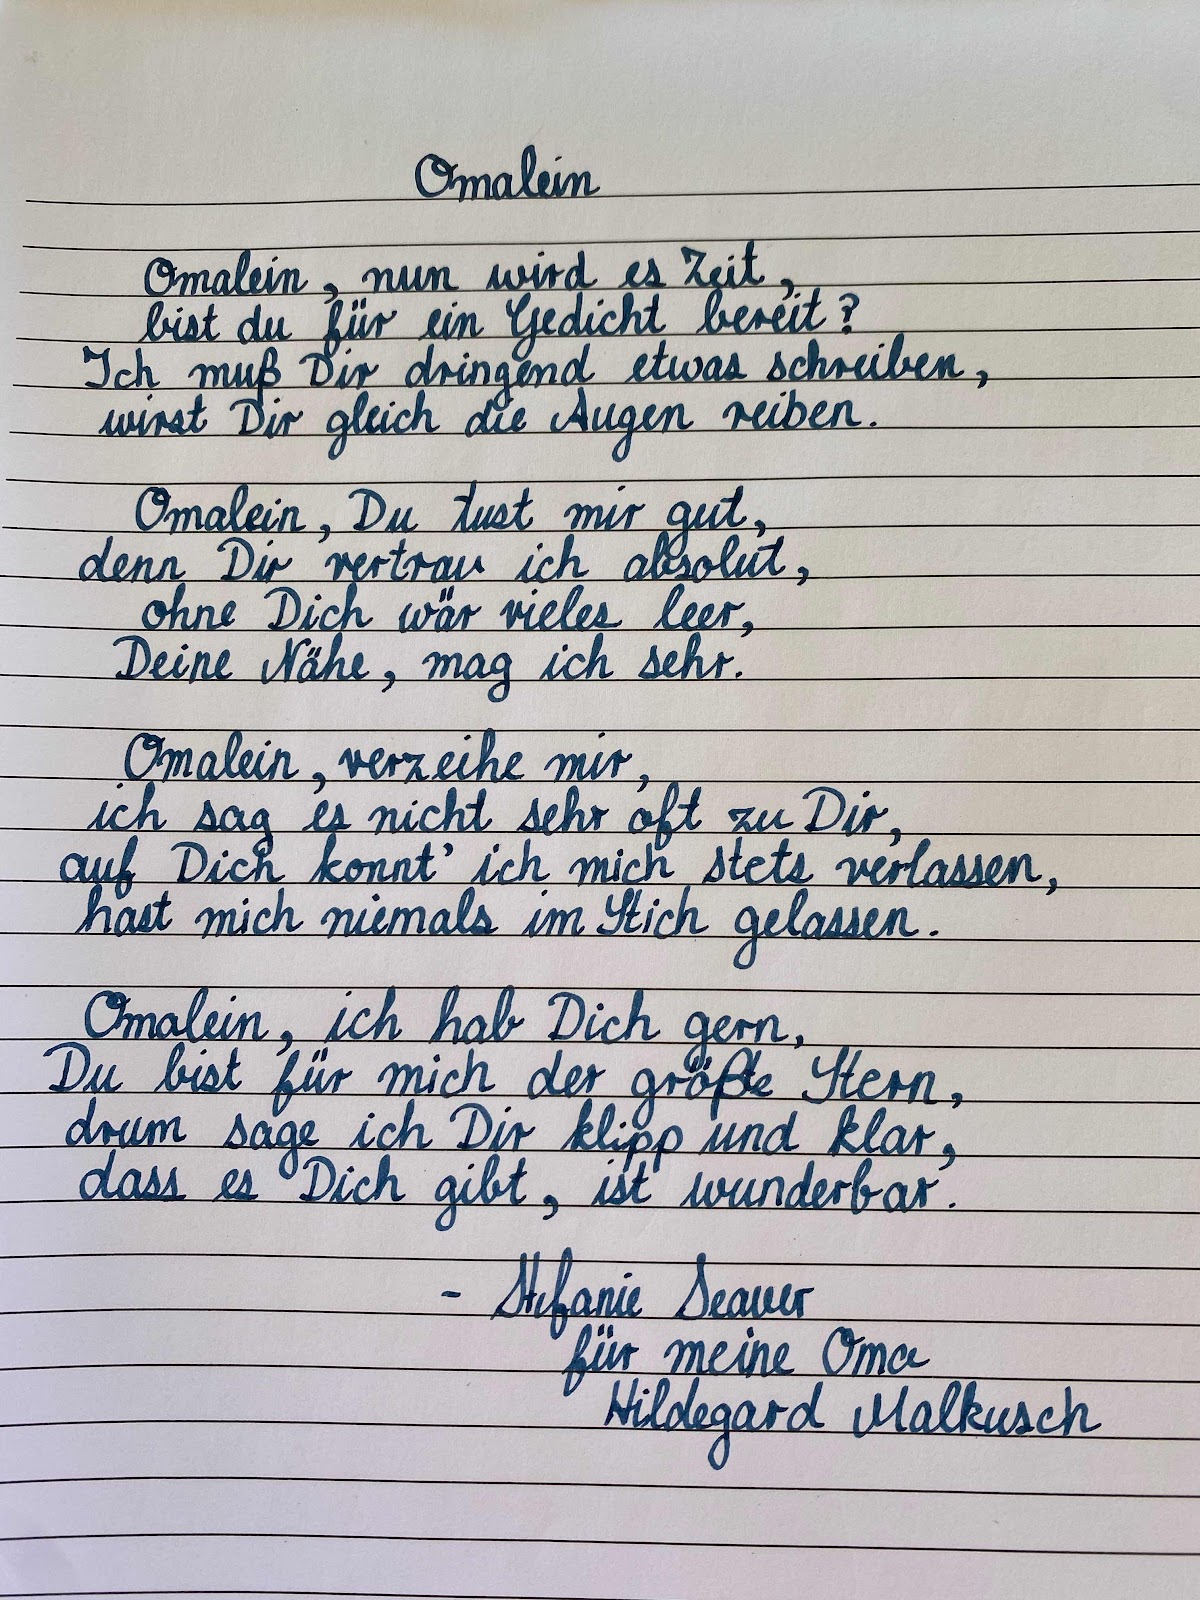 Omalein
Omalein, nun wird es Zeit,
bist du für ein Gedicht bereit?
Ich muß Dir dringend etwas schreiben,
wirst Dir gleich die Augen reiben.
Omalein, Du tust mir gut,
denn Dir vertrau ich absolut,
ohne Dich wär vieles leer,
Deine Nähe, mag ich sehr.
Omalein, verzeihe mir,
ich sag es nicht sehr oft zu Dir,
auf Dich konnt' ich mich stets verlassen,
hast mich niemals im Stich gelassen.
Omalein, ich hab Dich gern,
Du bist für mich der größte Stern,
drum sage ich Dir klipp und klar,
dass es Dich gibt, ist wunderbar.
- Stefanie Seaver
für meine Oma
Hildegard Malkusch